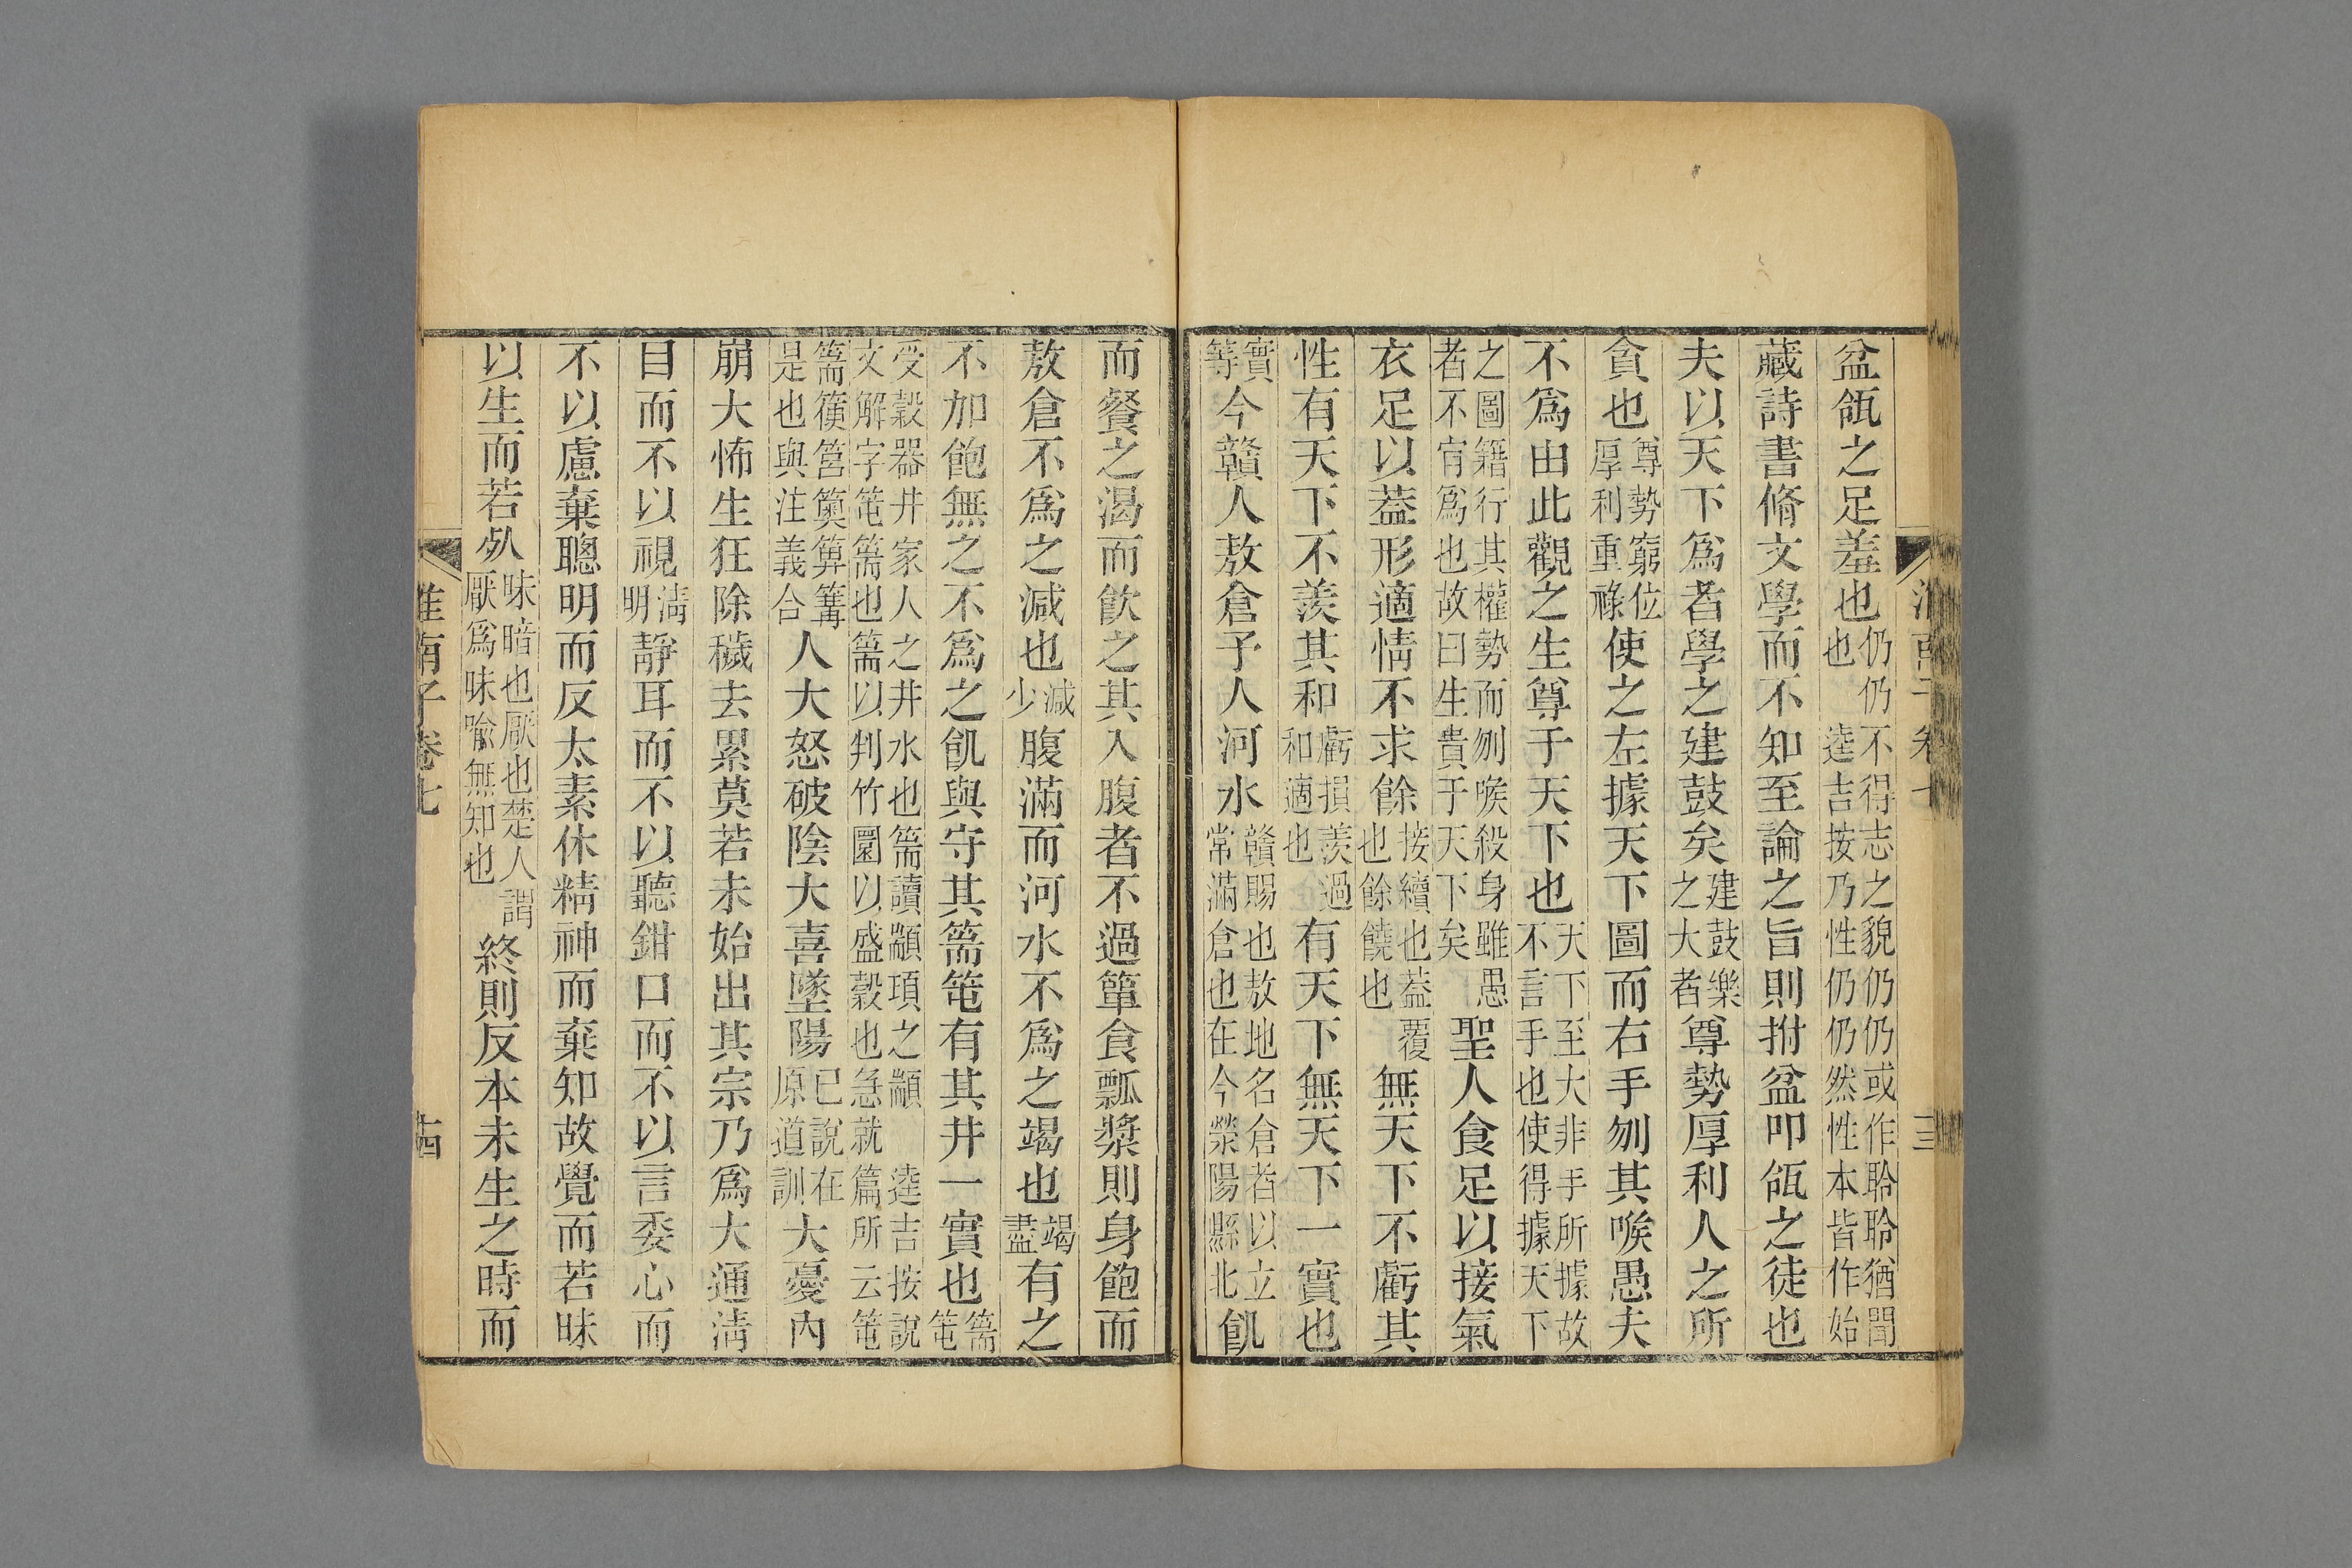 盆瓴之足羞也仍仍不得志之貌仍仍或作聆聆猶聞也逵吉按乃性仍仍然性本皆作始
藏詩書脩文學而不知至論之旨則拊盆叩瓴之徒也
夫以天下爲者學之建鼓矣建鼓樂之大者尊勢厚利人之所
貪也尊勢窮位厚利重祿使之左據天下圖而右手刎其喉愚夫
不爲由此觀之生尊于天下也天下至大非手所據故不言手也使得據天下
之圖籍行其權勢而刎喉殺身雖愚者不肯爲也故曰生貴于天下矣聖人食足以接氣
衣足以葢形適情不求餘接續也葢覆也餘饒也無天下不虧其
性有天下不羨其和虧損羨過和適也有天下無天下一實也
實等今贛人敖倉予人河水贛賜也敖地名倉者以立常滿倉也在今滎陽縣北飢
而餐之渴而飲之其入腹者不過簞食瓢漿則身飽而
敖倉不爲之減也減少腹滿而河水不爲之竭也竭盡有之
不加飽無之不爲之飢與守其篅䇬有其井一實也篅䇬
受穀器井家人之井水也篅讀顓頊之顓逵吉按說文解字䇬篅也篅以判竹圜以盛穀也急就篇所云䇬
篅䉛筥䉪箅篝是也與注義合人大怒破陰大喜墜陽已說在原道訓大憂内
崩大怖生狂除穢去累莫若未始出其宗乃爲大通淸
目而不以視淸明靜耳而不以聽鉗口而不以言委心而
不以慮棄聰明而反太素休精神而棄知故覺而若昧
以生而若死昧暗也厭也楚人謂厭爲昧喩無知也終則反本未生之時而
淮南子卷七
十四